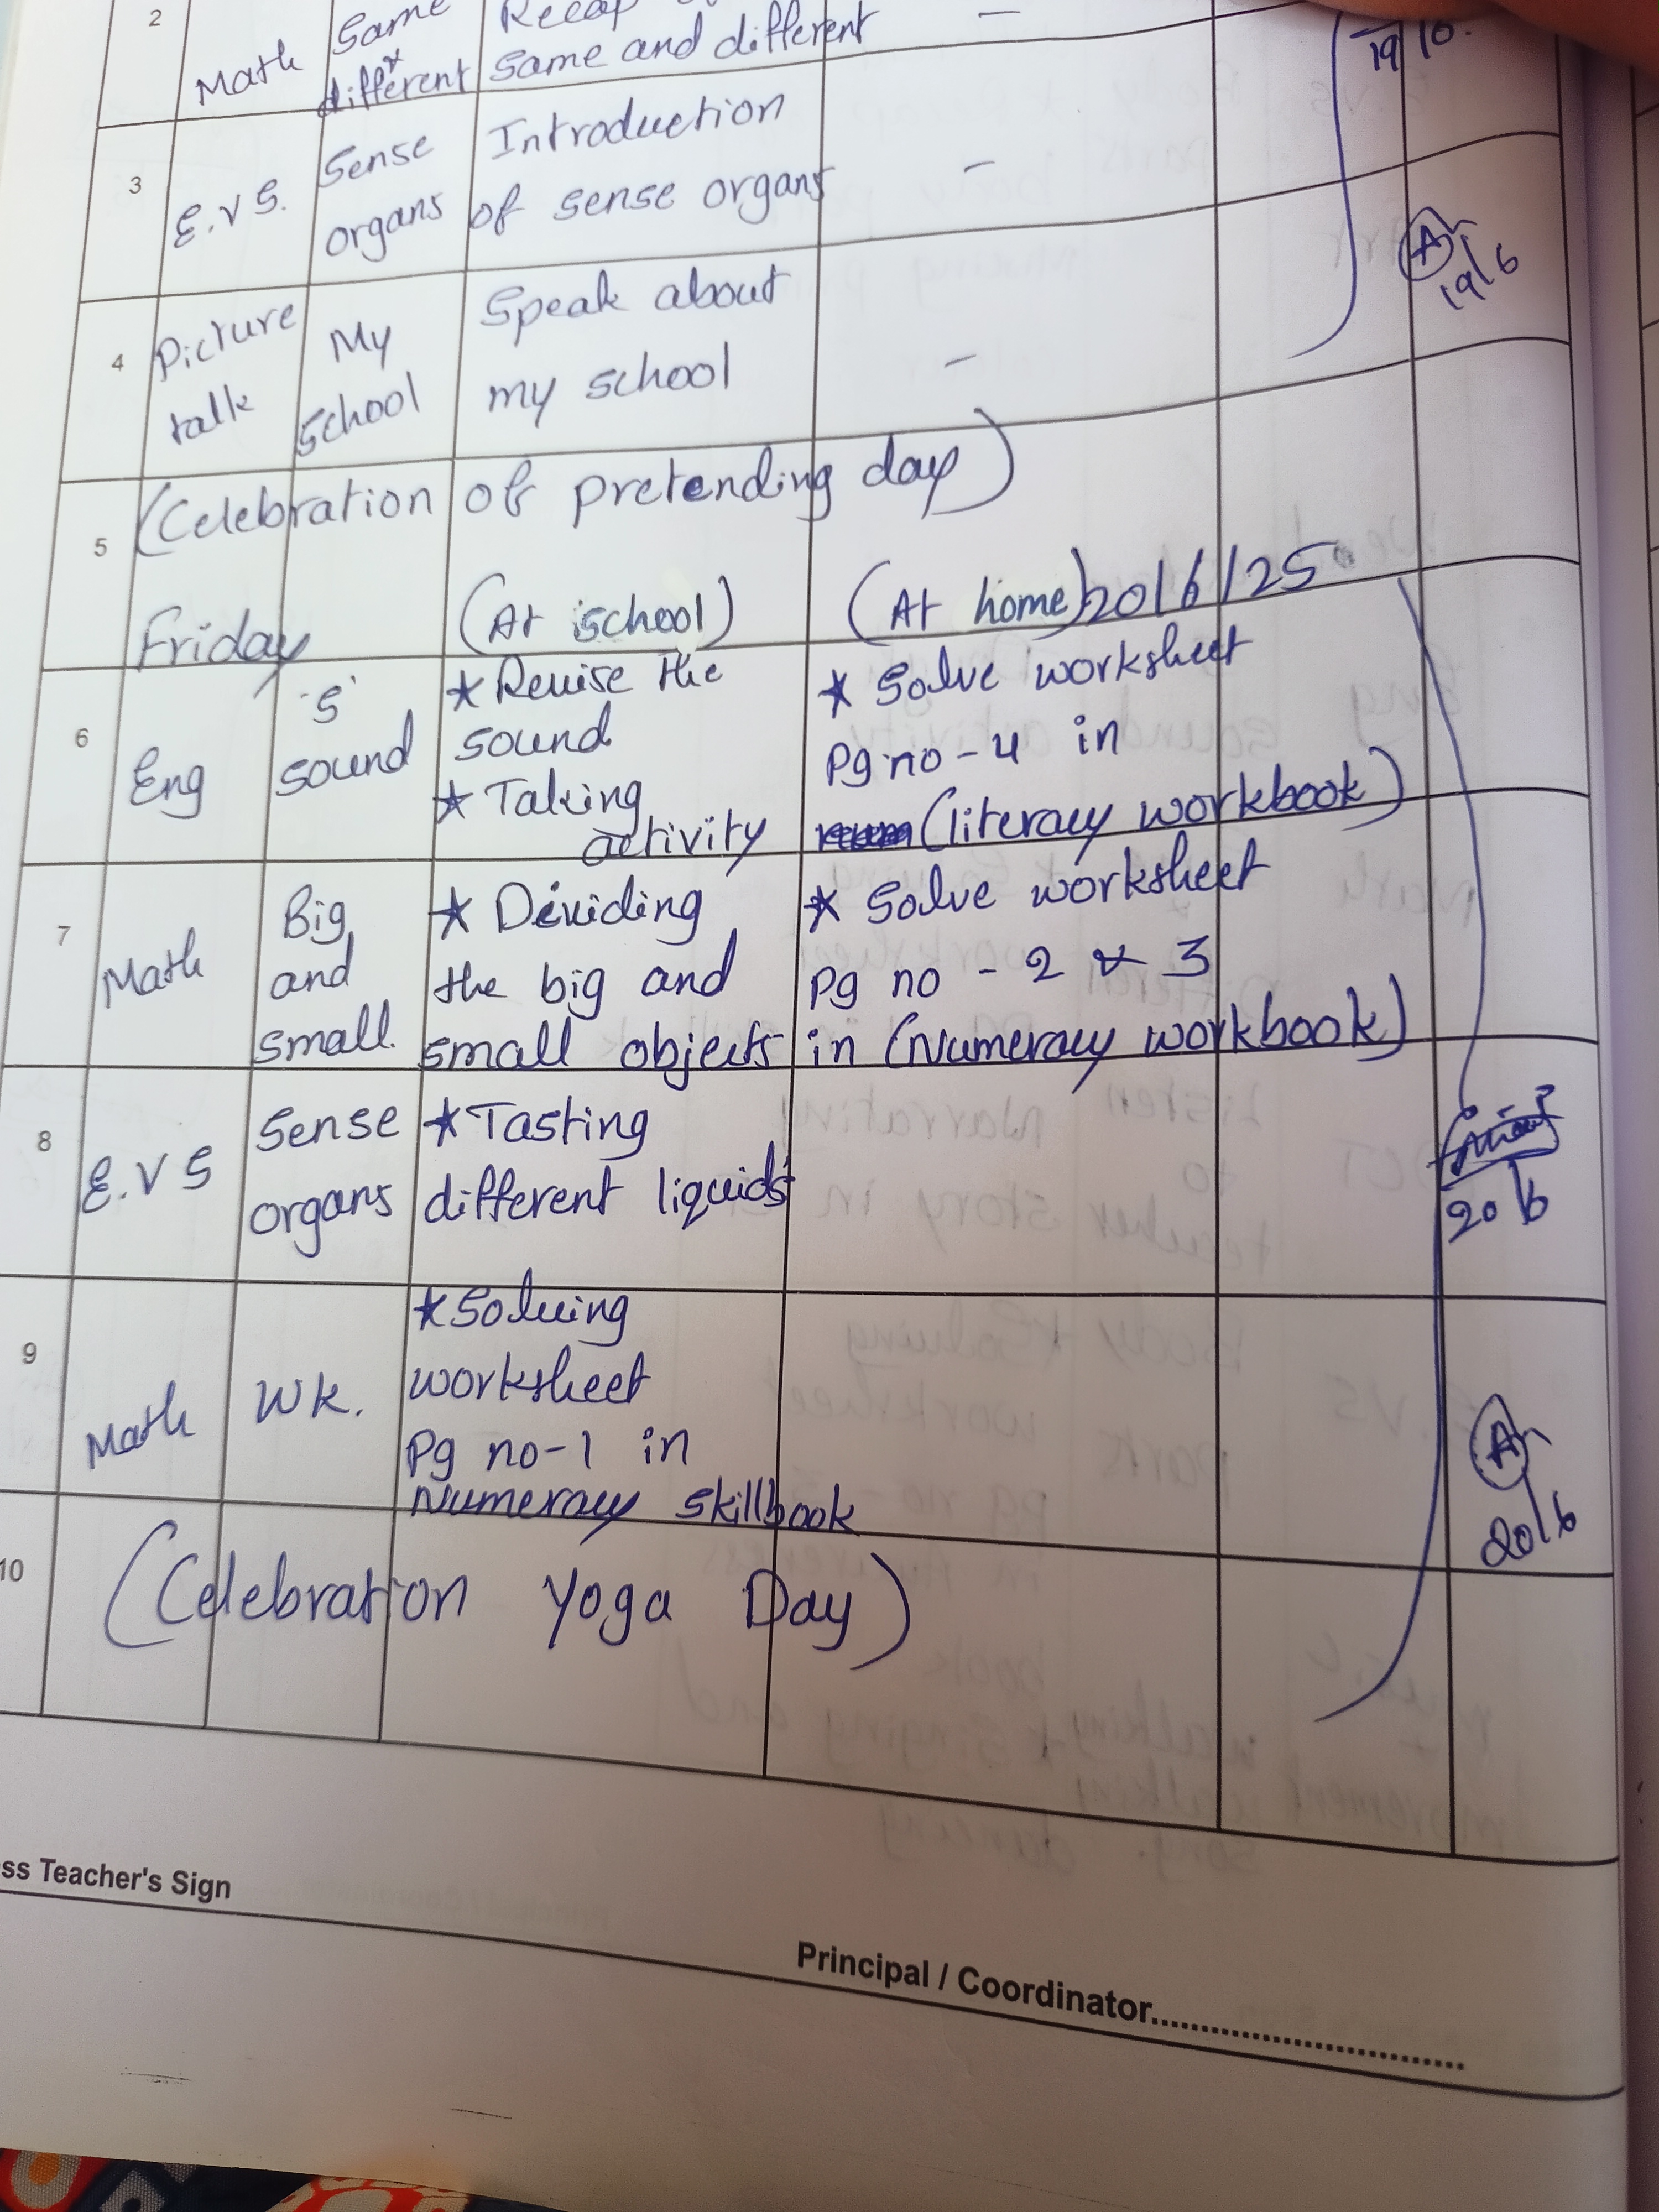 2 Math Same & different Recap
Same and different -
19/6
3 E.V.S. Sense organs Introduction of sense organs -
4 Picture talk My school Speak about my school -
A 19/6
5 (Celebration of pretending day)
Friday (At school) (At home) 20/6/25
6 Eng 's' sound * Revise the sound * Taking activity * Solve worksheet Pg no - 4 in (literacy workbook)
7 Math Big and small. * Dividing the big and small objects * Solve worksheet Pg no - 2 & 3 in (Numeracy workbook)
8 E.V S Sense organs * Tasting different liquids
20/6
9 Math WK. * Solving worksheet Pg no-1 in Numeracy skillbook
A 20/6
10 (Celebration Yoga Day)
ss Teacher's Sign
Principal / Coordinator..............................